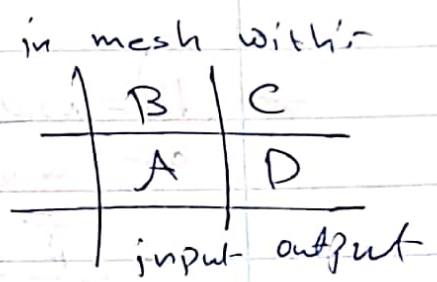 in mesh with:-
B C
A D
input output